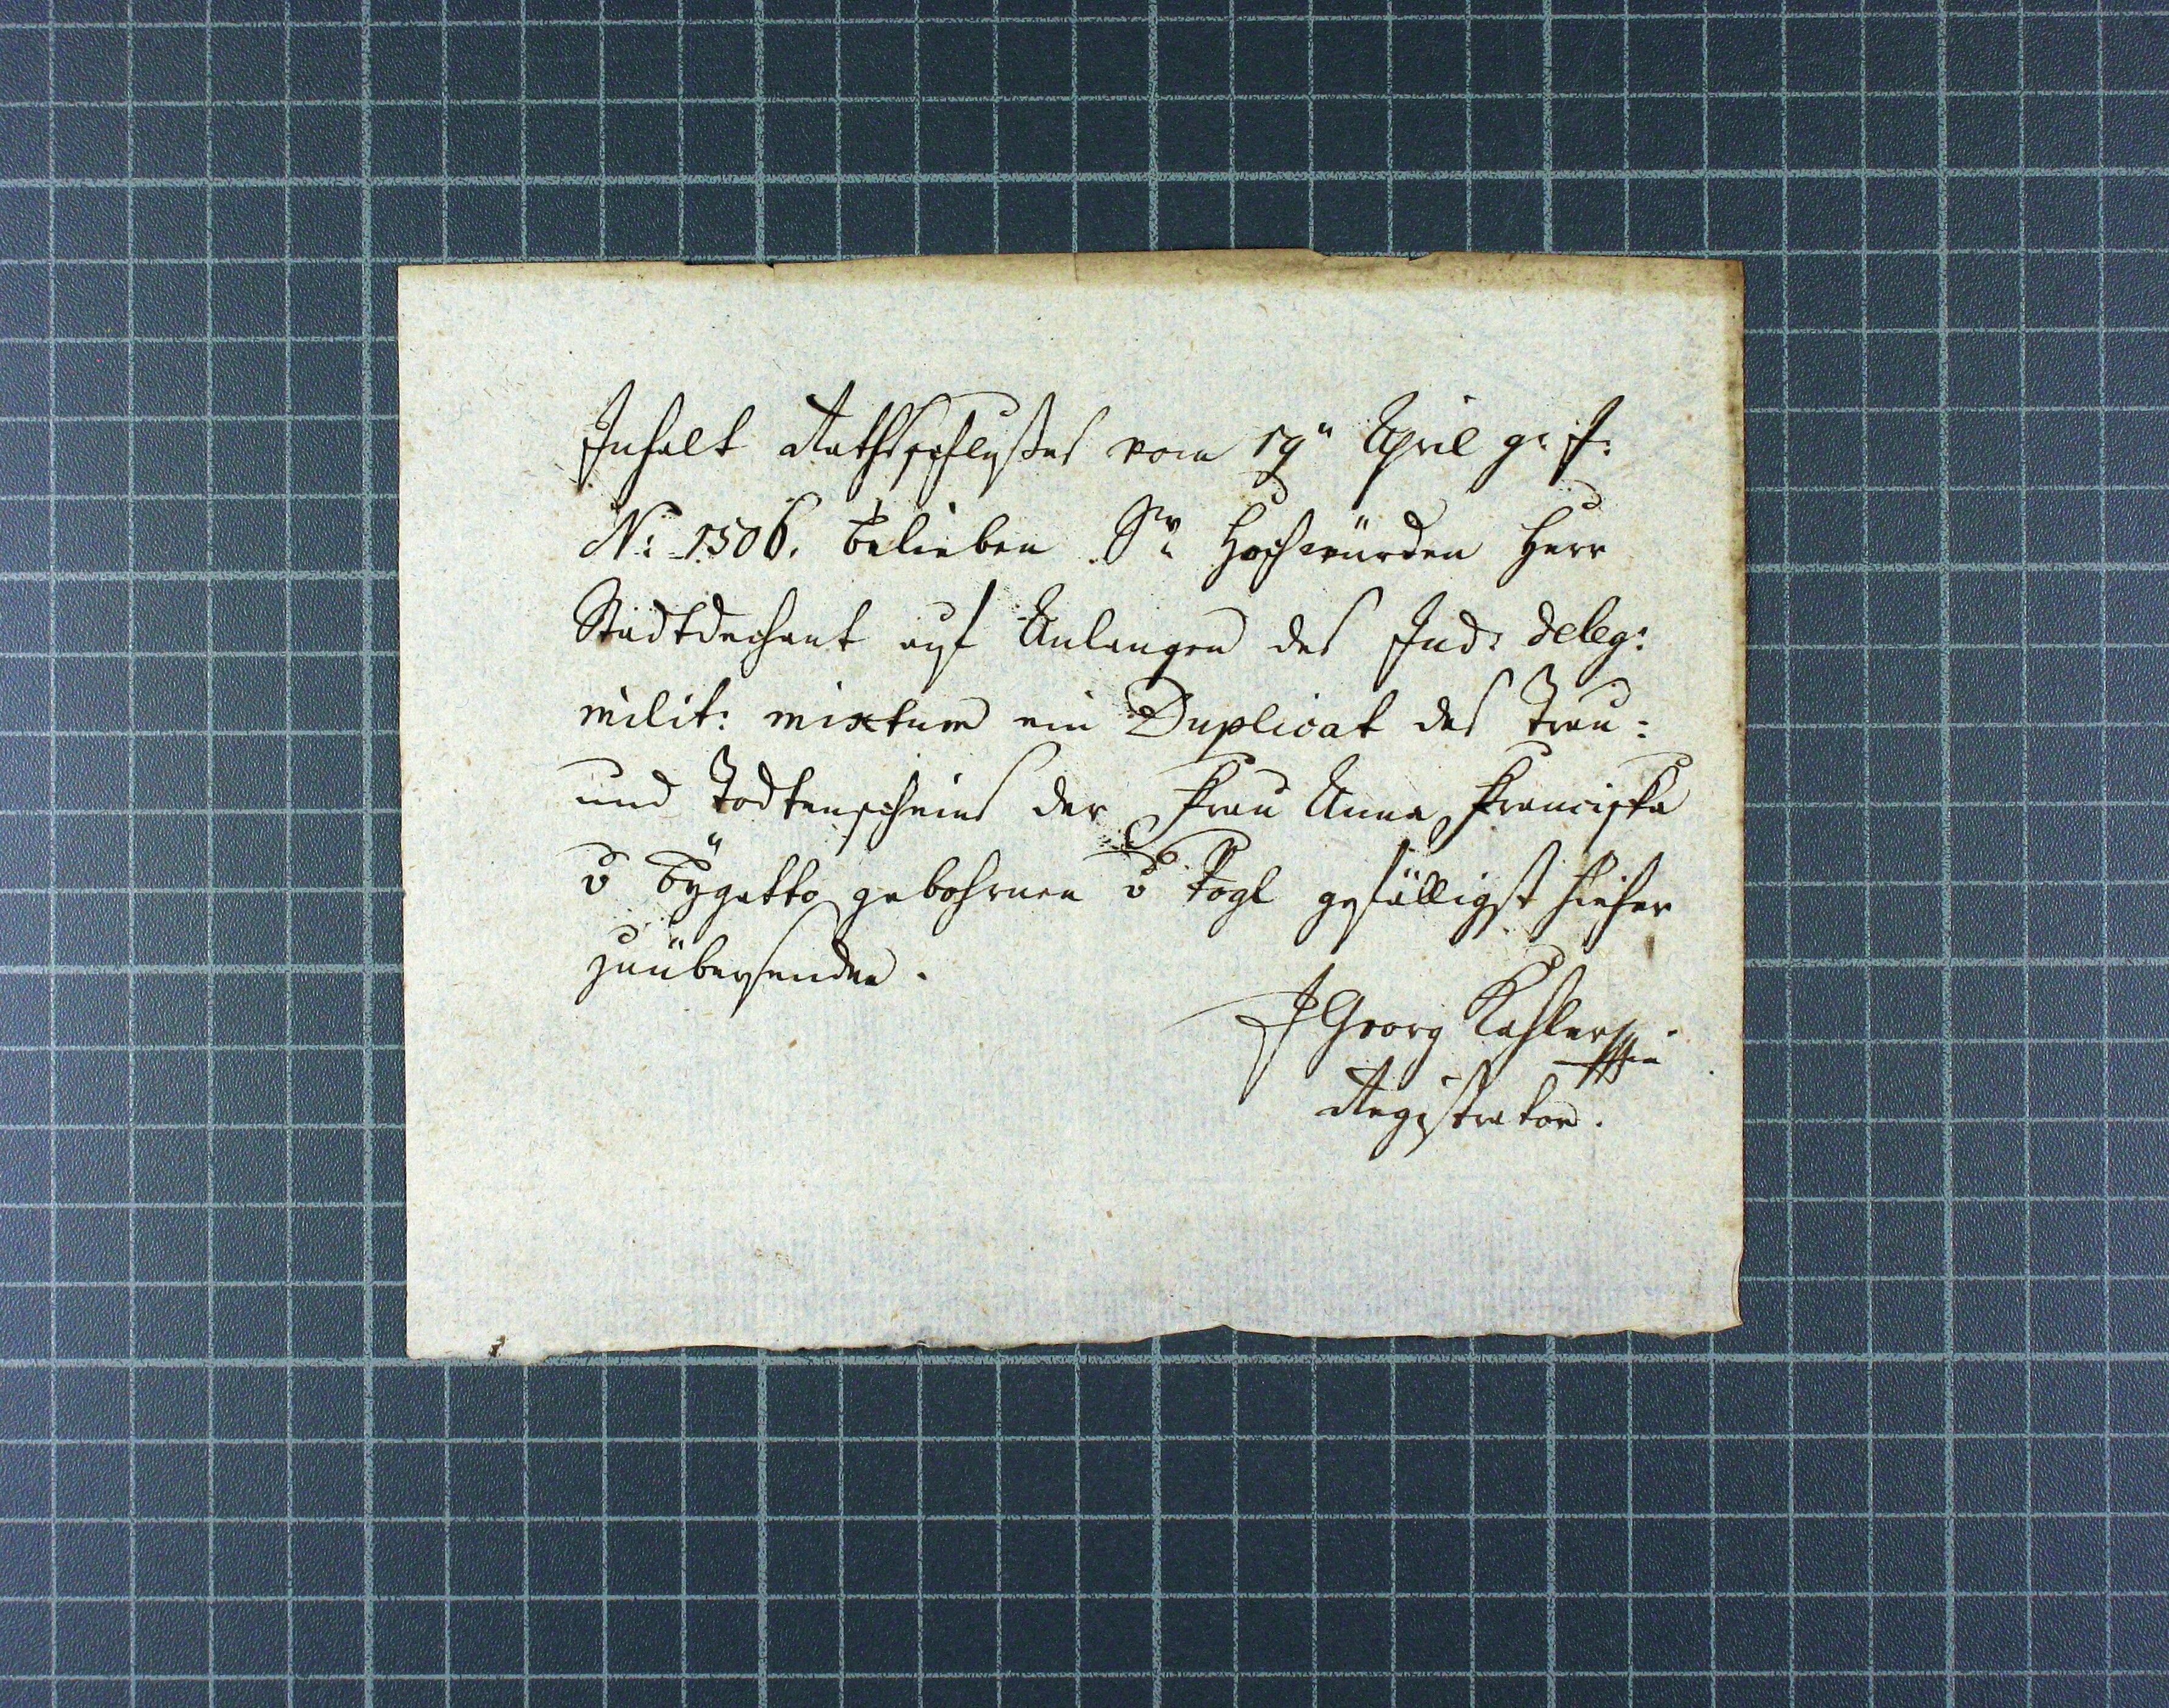 Inhalt Rathsschlußes vom 19" April g: J:
N: 1506. belieben Sr Hochwürden Herr
Stadtdechant auf Anlangen des Jud: deleg:
milit: mixtum ein Duplicat des Trau:
und Todtenscheins der Frau Anna Franciska
v Bÿgatto gebohrnen v Vogl gefälligst hieher
zuübersenden.
J Georg Kahler
Registrator.